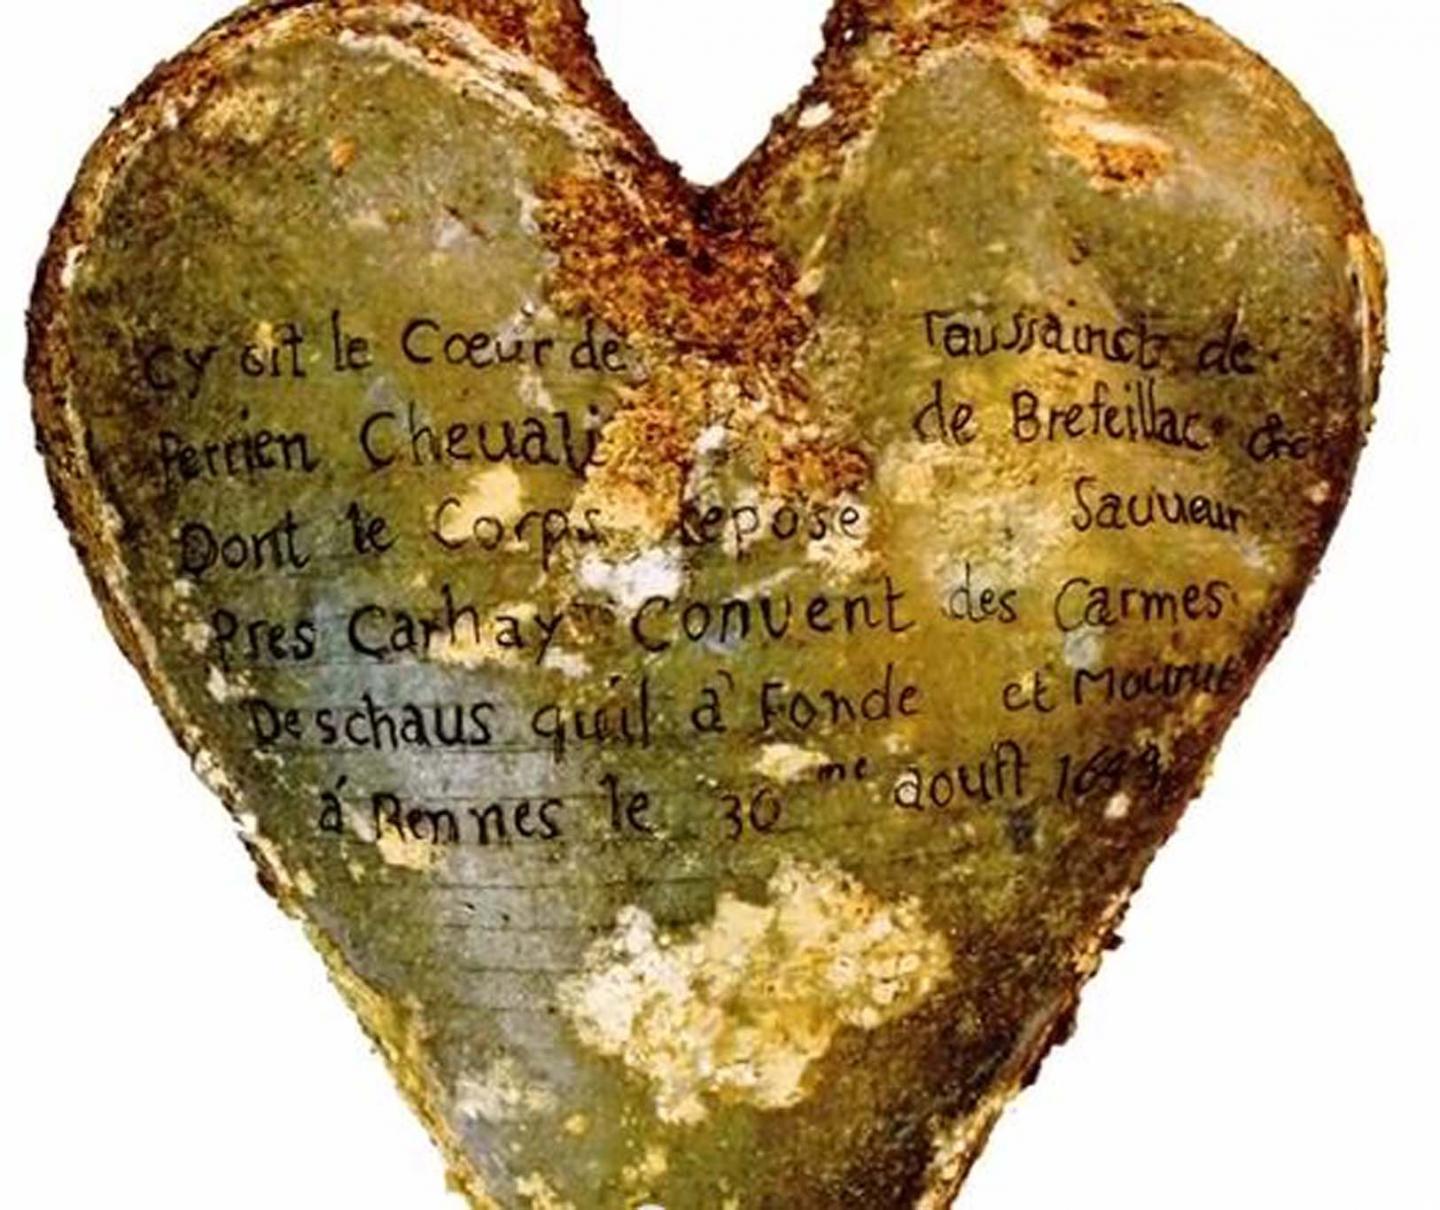 Cy Git le Cœur de Taussainct de
Perrien Cheuali de Brefeillac &c
Dont le Corps repose Sauueur
Pres Carhay Convent des Carmes
Deschaus quil à Fonde et Mourut
á Rennes le 30me aouſt 1649